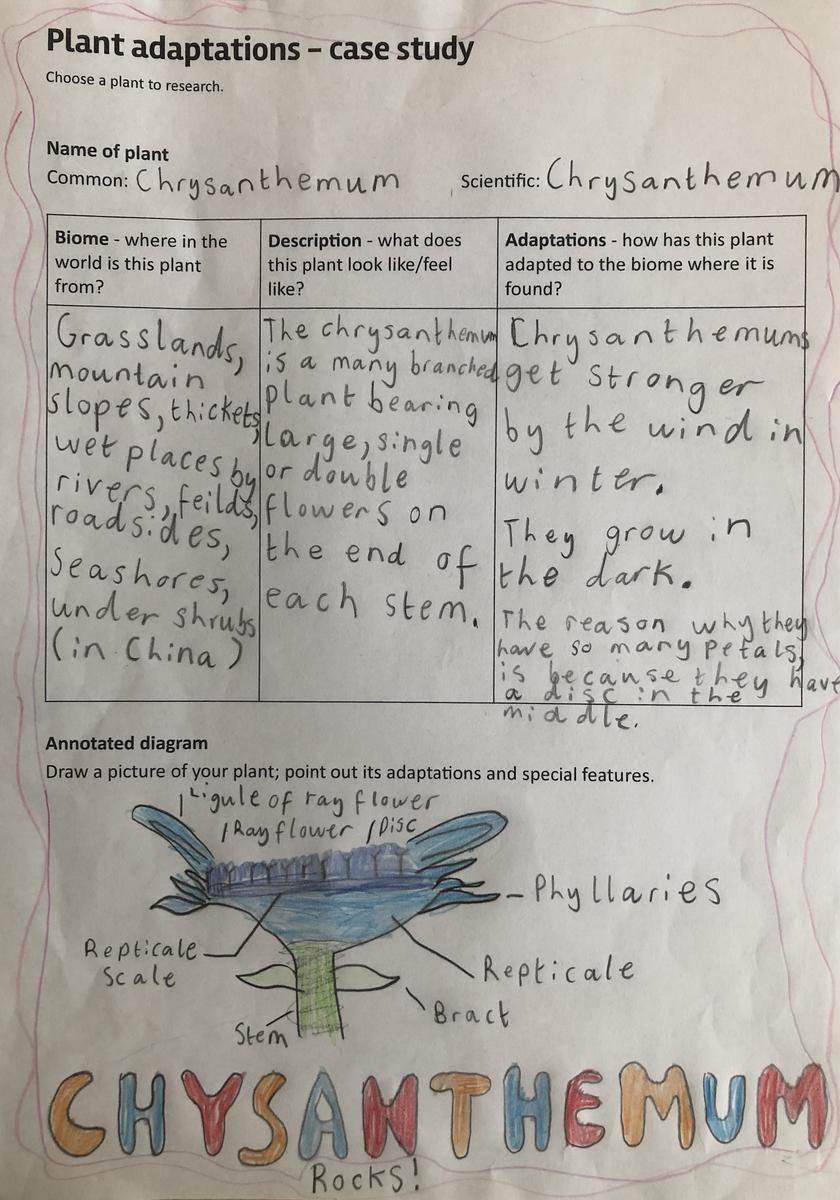 Plant adaptations – case study
Choose a plant to research.
Name of plant
Common: Chrysanthemum
Scientific: Chrysanthemum
Biome - where in the
world is this plant
from?
Grasslands,
mountain
slopes, thickets,
wet places by
rivers, feilds,
roadsides,
Seashores,
under shrubs
(in China)
Description - what does
this plant look like/feel
like?
The chrysanthemum
is a many branched
plant bearing
large, single
or double
flowers on
the end of
each stem.
Adaptations - how has this plant
adapted to the biome where it is
found?
Chrysanthemums
get stronger
by the wind in
winter.
They grow in
the dark.
The reason why they
have so many petals,
is because they have
a disc in the
middle.
Annotated diagram
Draw a picture of your plant; point out its adaptations and special features.
Ligule of ray flower
Ray flower
Disc
Phyllaries
Repticale
Scale
Repticale
Bract
Stem
CHYSANTHEMUM
Rocks!